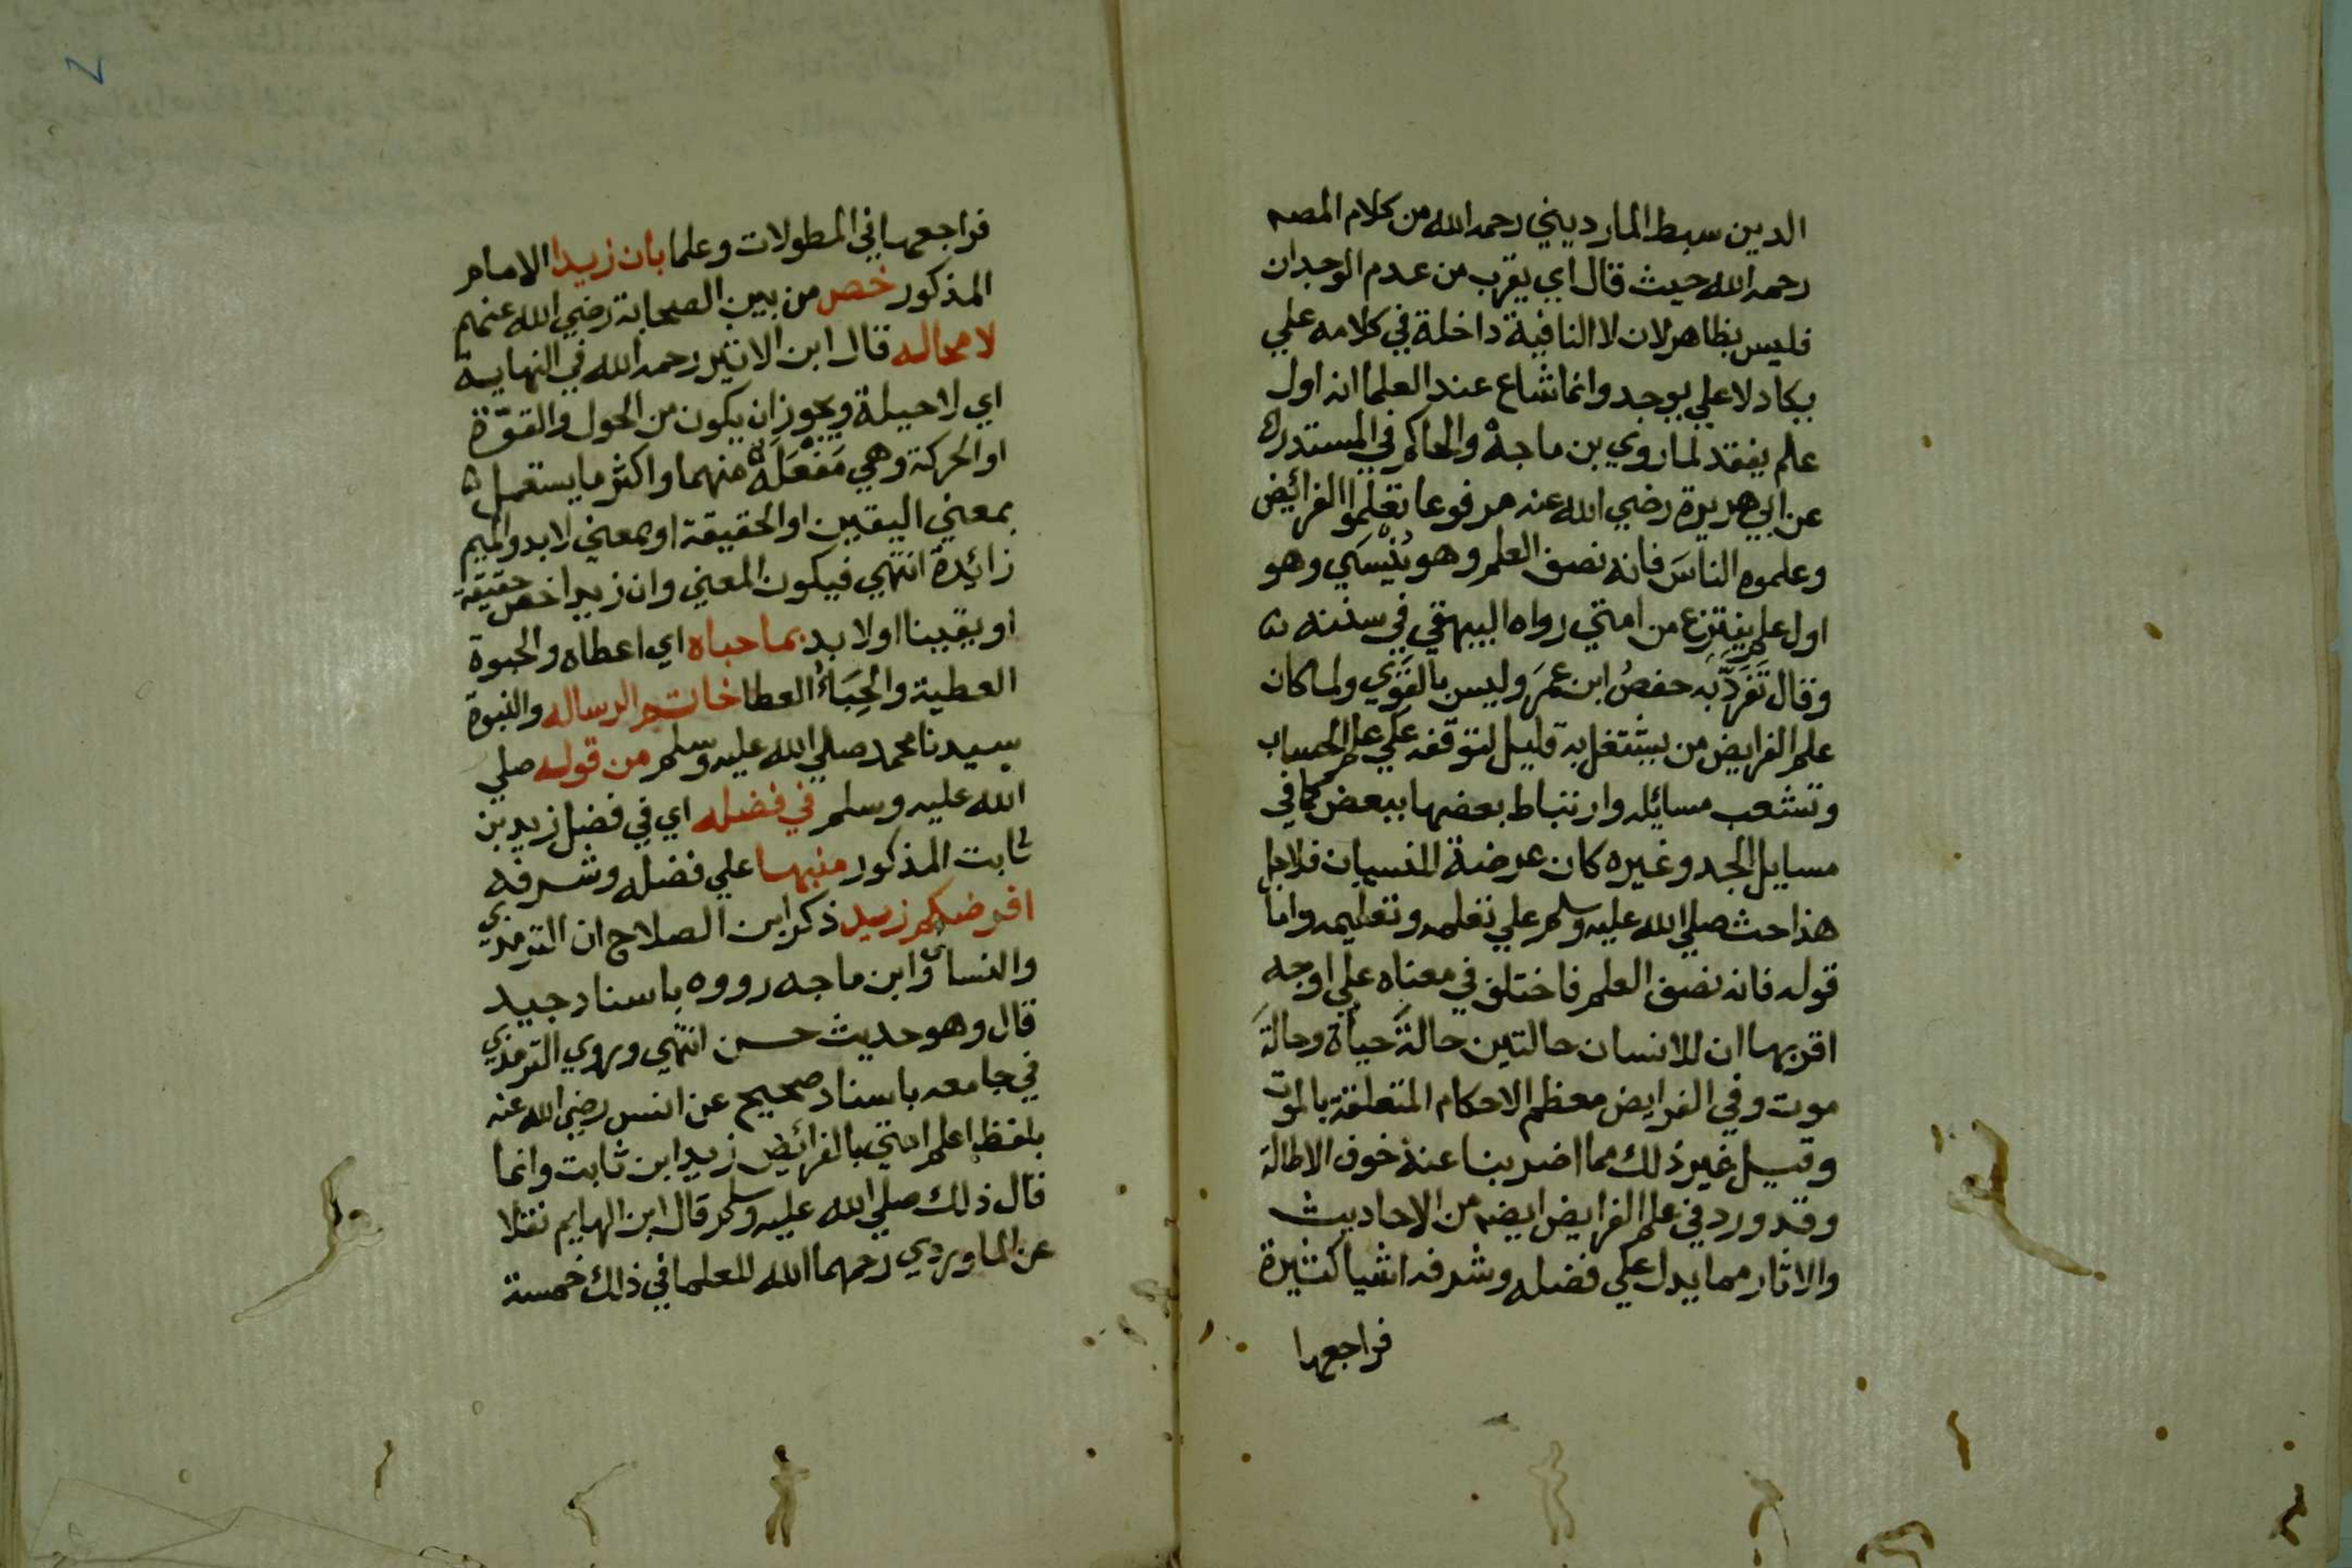 الدين سبط المارديني رحمه الله من كلام المصه
رحمه الله حيث قال اي يقرب من عدم الوجدان
فليس بظاهر لان لا النافية داخلة في كلامه علي
يكاد لا علي يوجد وانما شاع عند العلما انه اول
علم يفقد لما روي بن ماجة والحاكم في المستدرك
عن ابي هريرة رضي الله عنه مرفوعا تعلموا الفرائض
وعلموه الناسَ فانه نصف العلم وهو يُنْسَي وهو
اول علم ينتزع من امتي رواه البيهقي في سننه
وقال تَفَرَّدَ به حفصُ ابن عمَرَ وليس بالقَوَي ولما كان
علم الفرايض من يشتغل به قليل لتوقفه علي علم الحساب
وتشعب مسائله وارتباط بعضها ببعض كما في
مسايل الجد وغيره كان عرضة للنسيان فلاجل
هذا حث صلي الله عليه وسلم علي تعلمه وتعليمه واما
قوله فانه نصف العلم فاختلف في معناه علي اوجه
اقربها ان للانسان حالتين حالةَ حياة وحالةَ
موت وفي الفرايض معظم الاحكام المتعلقة بالموت
وقيل غير ذلك مما اضربنا عنه خوف الاطالة
وقد ورد في علم الفرايض ايضه من الاحاديث
والاثار مما يدل علي فضله وشرفه اشيا كثيرة
فراجعها
فراجعها في المطولات وعلما بان زيدا الامام
المذكور خص من بين الصحابة رضي الله عنهم
لا محاله قال ابن الاثير رحمه الله في النهاية
اي لا حيلة ويجوز ان يكون من الحول والقوّة
او الحركة وهي مَفْعَلَة منهما واكثر ما يستعمل
بمعني اليقين او الحقيقة او بمعني لا بد والميم
زائدة انتهي فيكون المعني وان زيدا خص حقيقة
او يقينا او لا بد بما حباه اي اعطاه والحبوة
العطية والحِبَاءُ العطا خاتم الرساله والنبوة
سيدنا محمد صلي الله عليه وسلم من قوله صلي
الله عليه وسلم في فضله اي في فضل زيد بن
ثابت المذكور منبها علي فضله وشرفه
افرضكم زيد ذكر ابن الصلاح ان الترمذي
والنسائ وابن ماجه رووه باسناد جيد
قال وهو حديث حسن انتهي وروي الترمذي
في جامعه باسناد صحيح عن انس رضي الله عنه
بلفظ اعلم امتي بالفرائض زيد ابن ثابت وانما
قال ذلك صلي الله عليه وسلم قال ابن الهايم نقلا
عن الماوردي رحمهما الله للعلما في ذلك خمسة